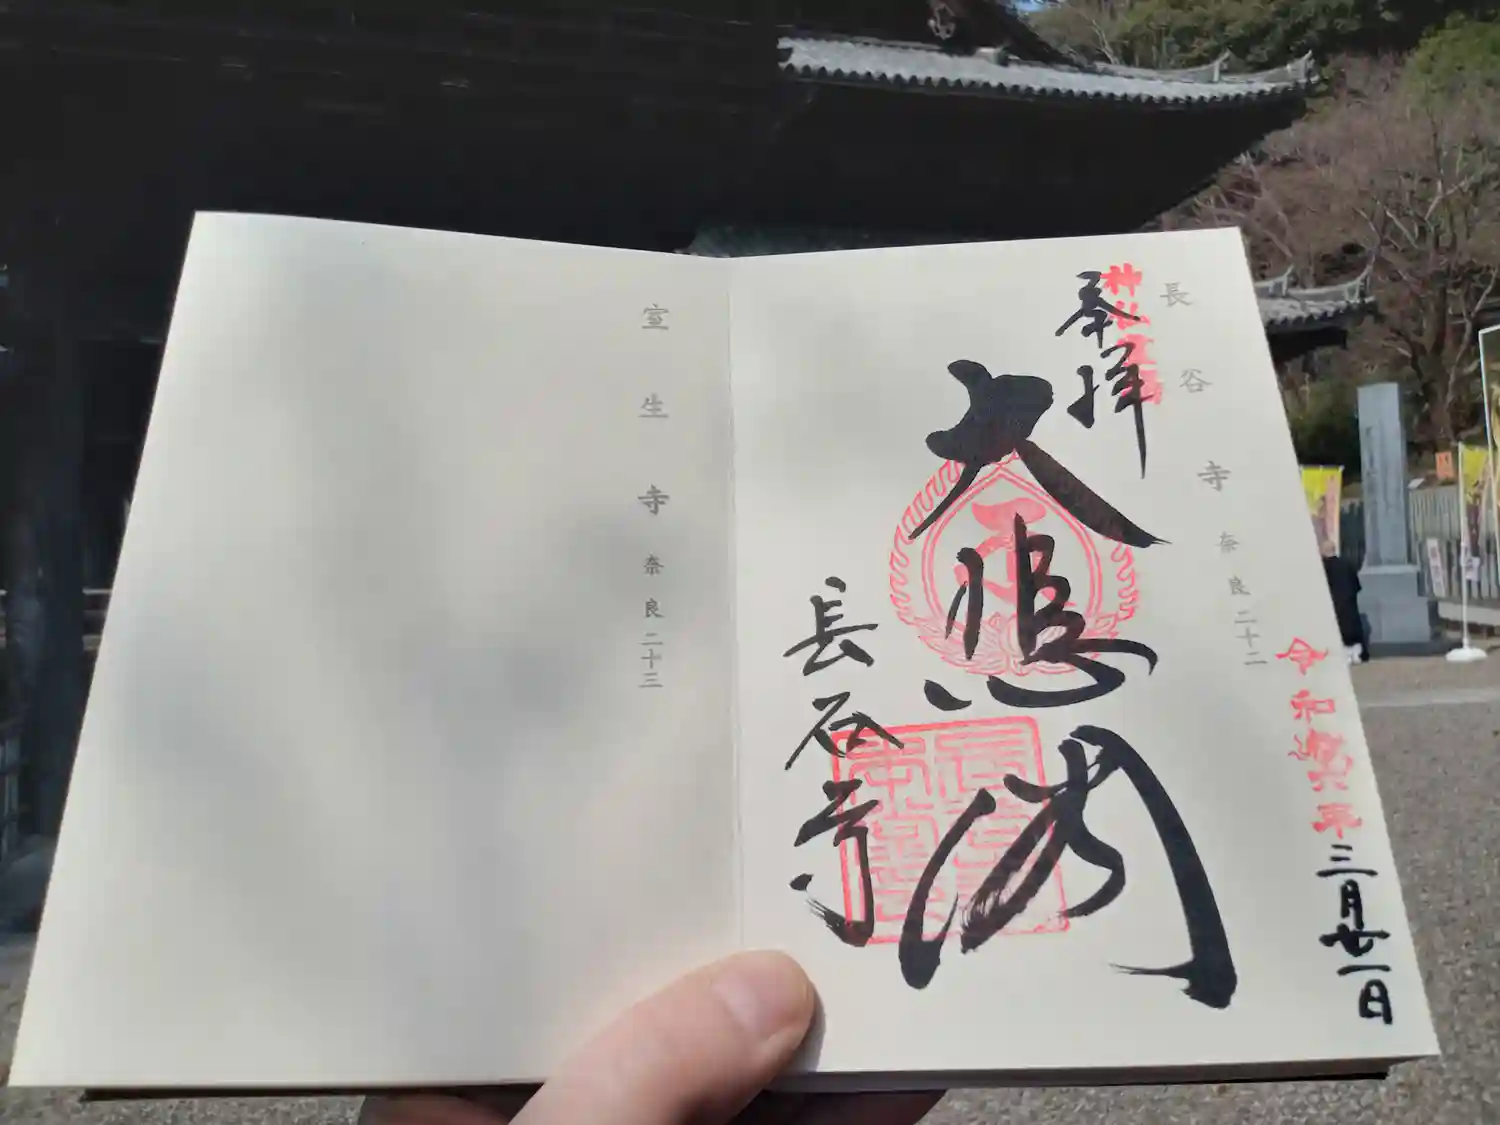 長谷寺 奈良二十二
奉拝
大悲閣
長谷寺
令和六年三月廿一日
室生寺 奈良二十三